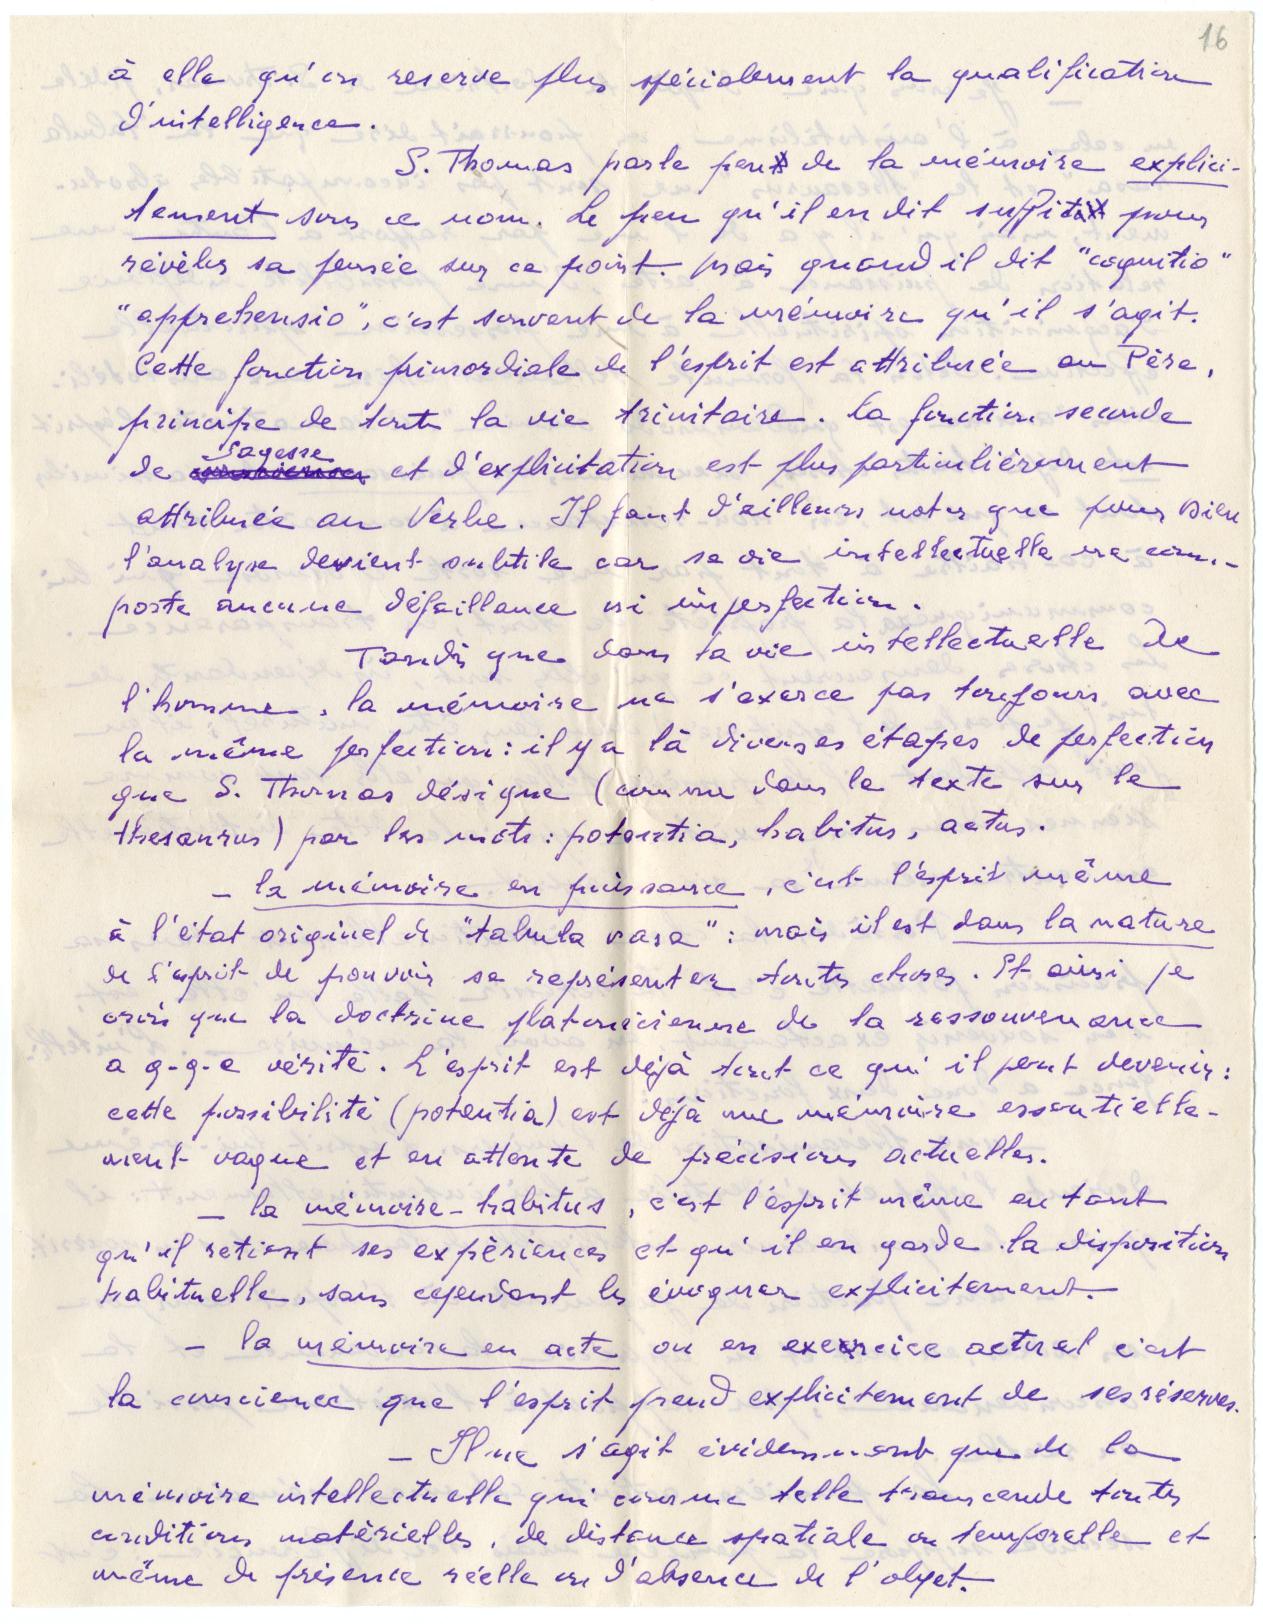 16
à elle qu'on reserve plus spécialement la qualification
d'intelligence.
S. Thomas parle peu de la mémoire explici-
tement sous ce nom. Le peu qu'il en dit suffit pour
révéler sa pensée sur ce point. Mais quand il dit "cognitio"
"apprehensio", c'est souvent de la mémoire qu'il s'agit.
Cette fonction primordiale de l'esprit est attribuée au Père,
principe de toute la vie trinitaire. La fonction seconde
de sagesse et d'explicitation est plus particulièrement
attribuée au Verbe. Il faut d'ailleurs noter que pour Dieu
l'analyse devient subtile car sa vie intellectuelle ne com-
porte aucune défaillance ni imperfection.
Tandis que dans la vie intellectuelle de
l'homme, la mémoire ne s'exerce pas toujours avec
la même perfection : il y a là diverses étapes de perfection
que S. Thomas désigne (comme dans le texte sur le
thesaurus) par les mots : potentia, habitus, actus.
- la mémoire en puissance, c'est l'esprit même
à l'état originel de "tabula rasa" : mais il est dans la nature
de l'esprit de pouvoir se représenter toutes choses. Et ainsi je
crois que la doctrine platonicienne de la ressouvenance
a q-q-e vérité. L'esprit est déjà tout ce qu'il peut devenir :
cette possibilité (potentia) est déjà une mémoire essentielle-
ment vague et en attente de précisions actuelles.
- la mémoire-habitus, c'est l'esprit même en tant
qu'il retient ses expériences et qu'il en garde la disposition
habituelle, sans cependant les évoquer explicitement.
- la mémoire en acte ou en exercice actuel c'est
la conscience que l'esprit prend explicitement de ses réserves.
- Il ne s'agit évidemment que de la
mémoire intellectuelle qui comme telle transcende toutes
conditions matérielles, de distance spatiale ou temporelle et
même de présence réelle ou d'absence de l'objet.